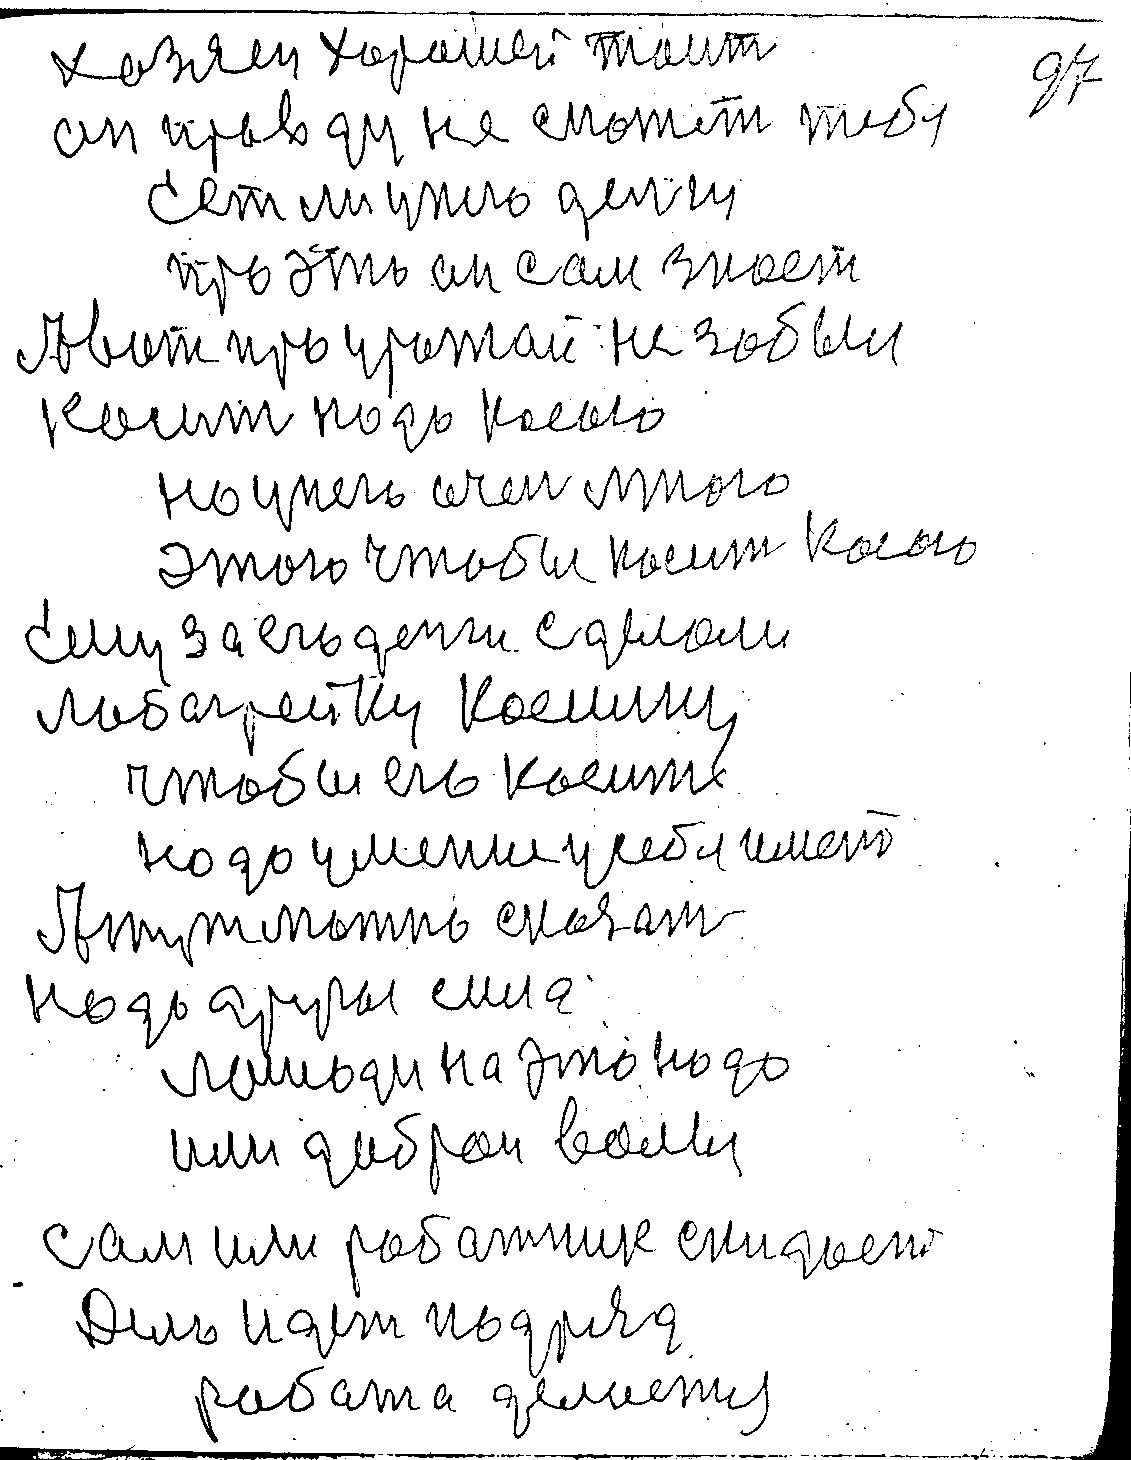 хозяен хорошей тоит
97
он правду не сможет тебя
Сет ли унего денги
про это он сам знает
Авот про урожаи не забыл
Косит надо косою
но унего очен много
этого чтобы косит косою
Ему за его денги сделали
лобагрейку косилку
чтобы его косить
надо умение усебя имет
Атут можно сказат
надо другая сила
лошади на это надо
или доброи волы
сам или работник скидает
Дело идет подряд
работа делается